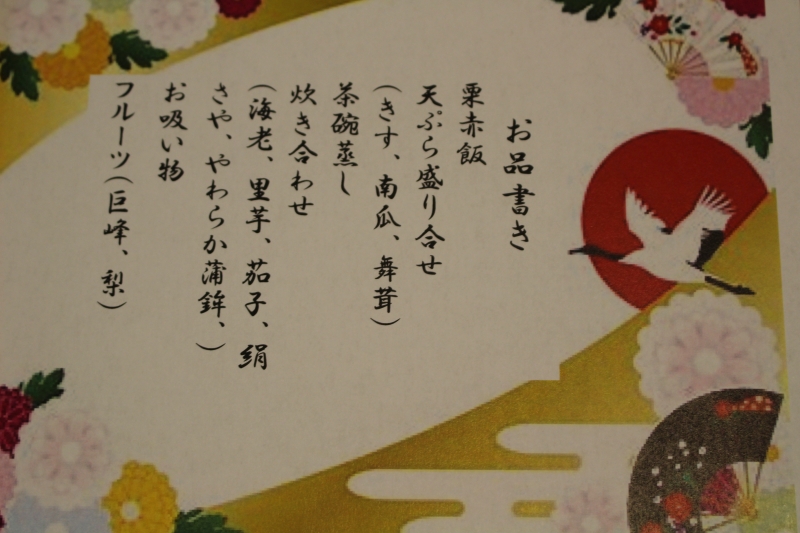 お品書き
栗赤飯
天ぷら盛り合せ
（きす、南瓜、舞茸）
茶碗蒸し
炊き合わせ
（海老、里芋、茄子、絹
さや、やわらか蒲鉾、）
お吸い物
フルーツ（巨峰、梨）